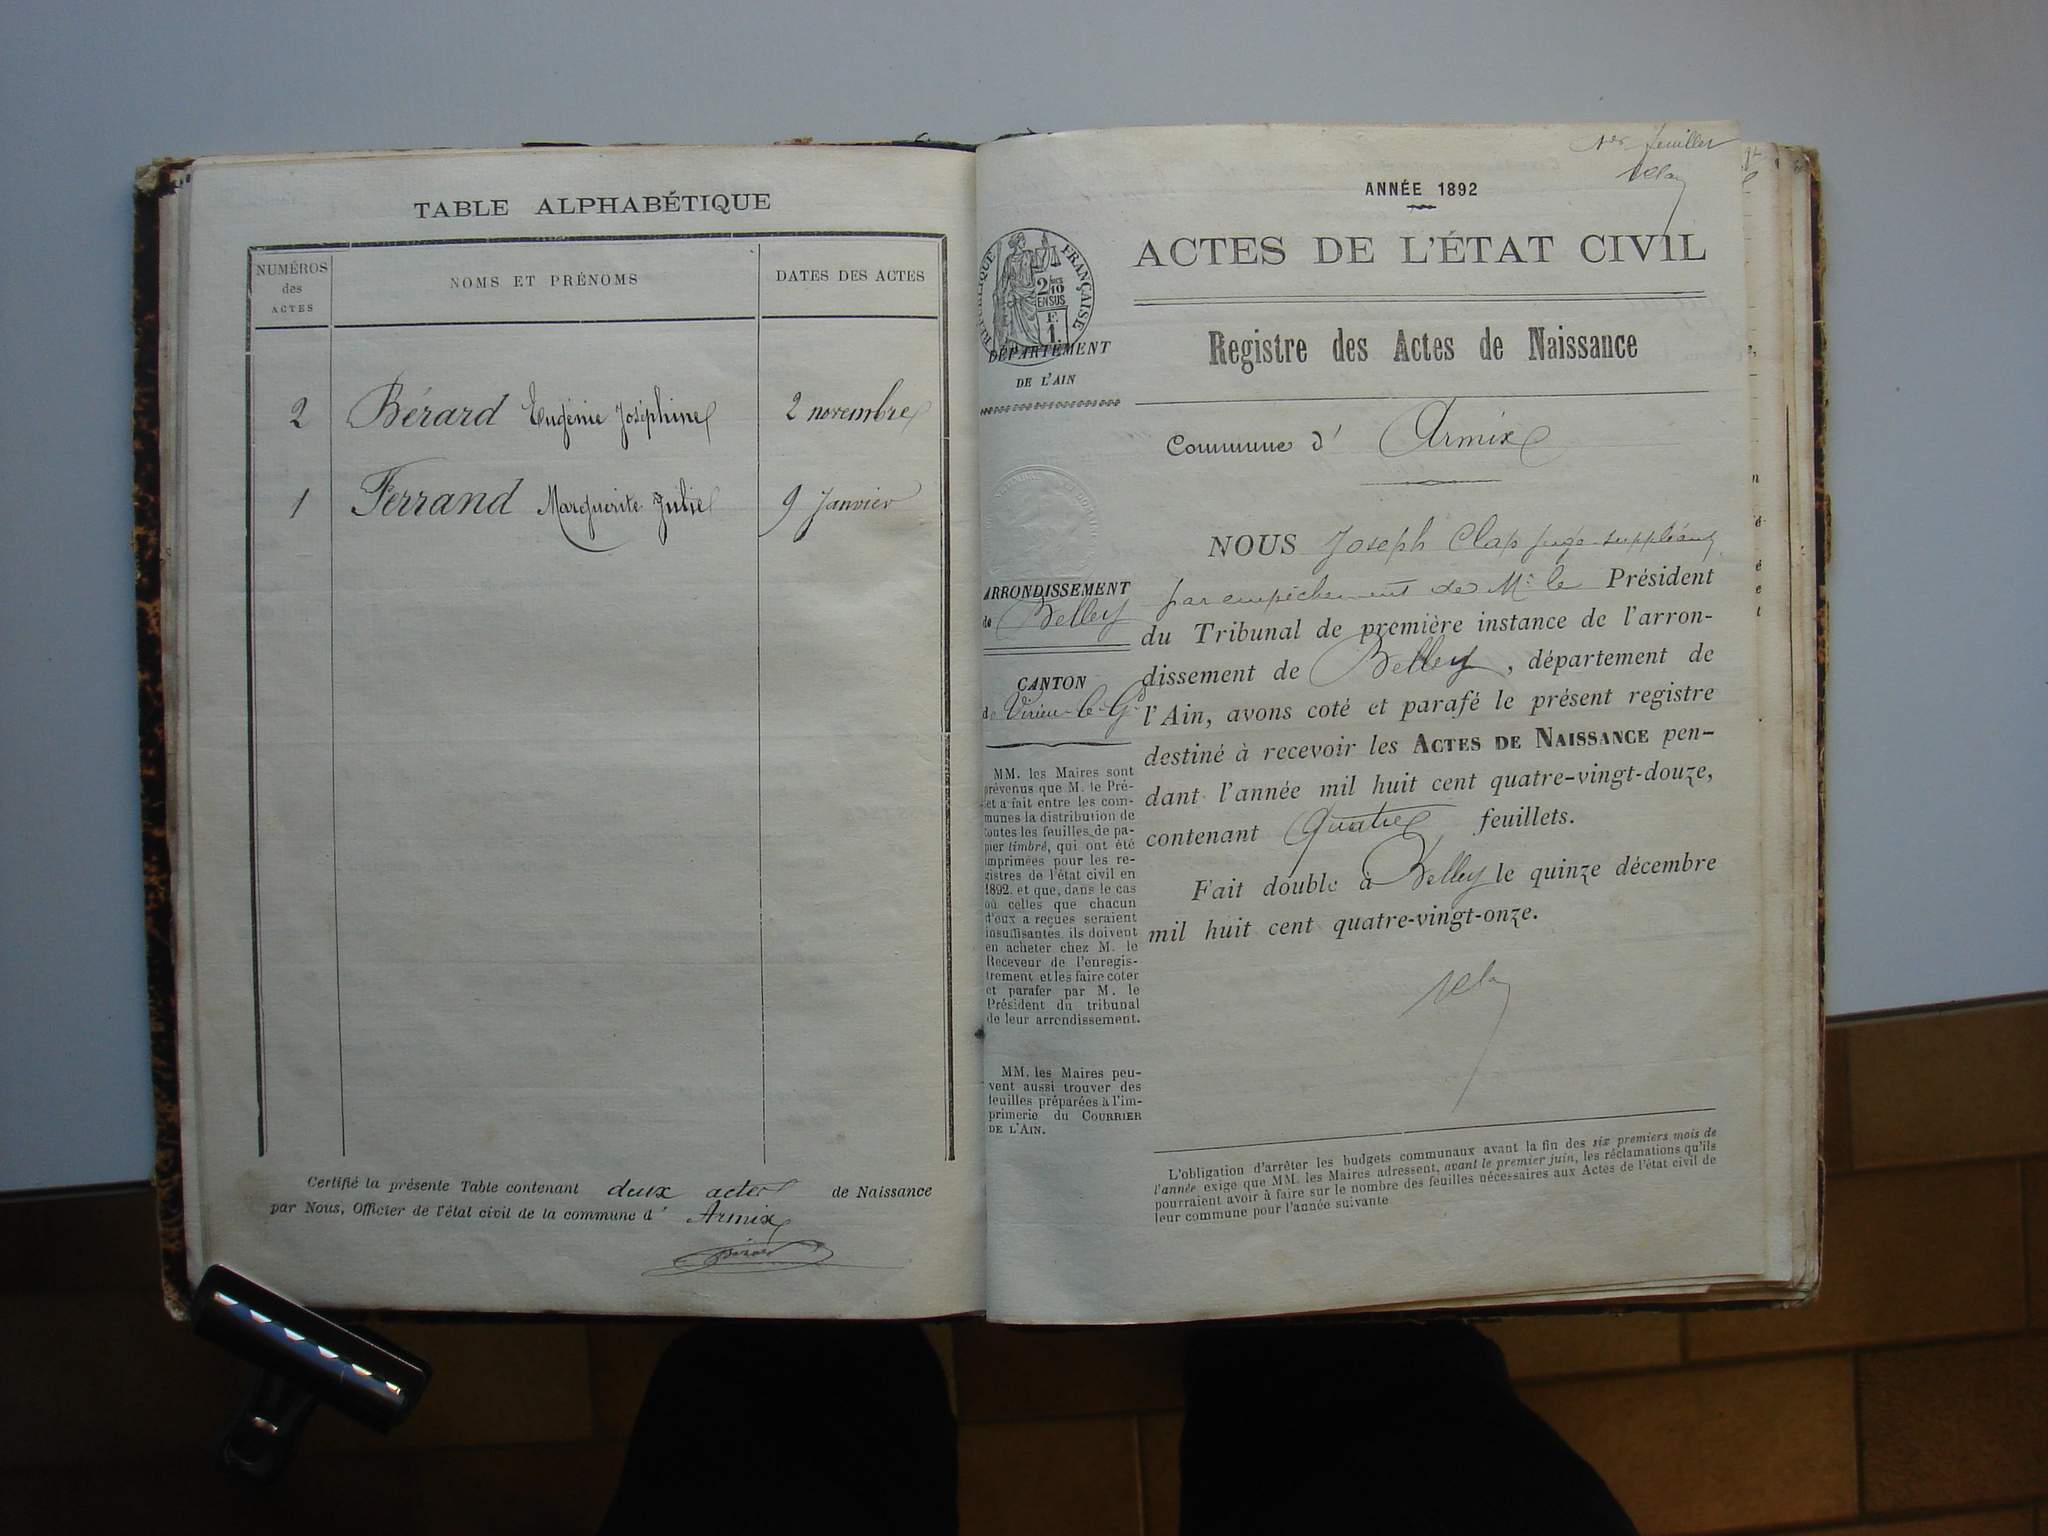 TABLE ALPHABÉTIQUE
NUMÉROS
des
ACTES
NOMS ET PRÉNOMS
DATES DES ACTES
2 Bérard Eugénie Joséphine 2 novembre
1 Ferrand Marguerite Julie 9 Janvier
Certifié la présente Table contenant deux actes de Naissance
par Nous, Officier de l'état civil de la commune d' Armix
Bérard
1er feuillet
ANNÉE 1892
ACTES DE L'ÉTAT CIVIL
RÉPUBLIQUE FRANÇAISE
2/10
EN SUS
F.
1.
DÉPARTEMENT
DE L'AIN
Registre des Actes de Naissance
Commune d' Armix
ARRONDISSEMENT
de Belley
CANTON
de Virieu-le-Gd
MM. les Maires sont
prévenus que M. le Pré-
fet a fait entre les com-
munes la distribution de
toutes les feuilles de pa-
pier timbré, qui ont été
imprimées pour les re-
gistres de l'état civil en
1892. et que, dans le cas
où celles que chacun
d'eux a reçues seraient
insuffisantes. ils doivent
en acheter chez M. le
Receveur de l'enregis-
trement et les faire coter
et parafer par M. le
Président du tribunal
de leur arrondissement.
MM. les Maires peu-
vent aussi trouver des
feuilles préparées à l'im-
primerie du COURRIER
DE L'AIN.
NOUS Joseph Clap juge suppléant
par empêchement de Mr le Président
du Tribunal de première instance de l'arron-
dissement de Belley, département de
l'Ain, avons coté et parafé le présent registre
destiné à recevoir les ACTES DE NAISSANCE pen-
dant l'année mil huit cent quatre-vingt-douze,
contenant Quatre feuillets.
Fait double à Belley le quinze décembre
mil huit cent quatre-vingt-onze.
L'obligation d'arrêter les budgets communaux avant la fin des six premiers mois de
l'année exige que MM. les Maires adressent, avant le premier juin, les réclamations qu'ils
pourraient avoir à faire sur le nombre des feuilles nécessaires aux Actes de l'état civil de
leur commune pour l'année suivante